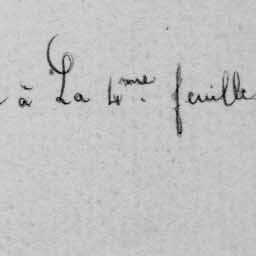 à La 4me. feuille